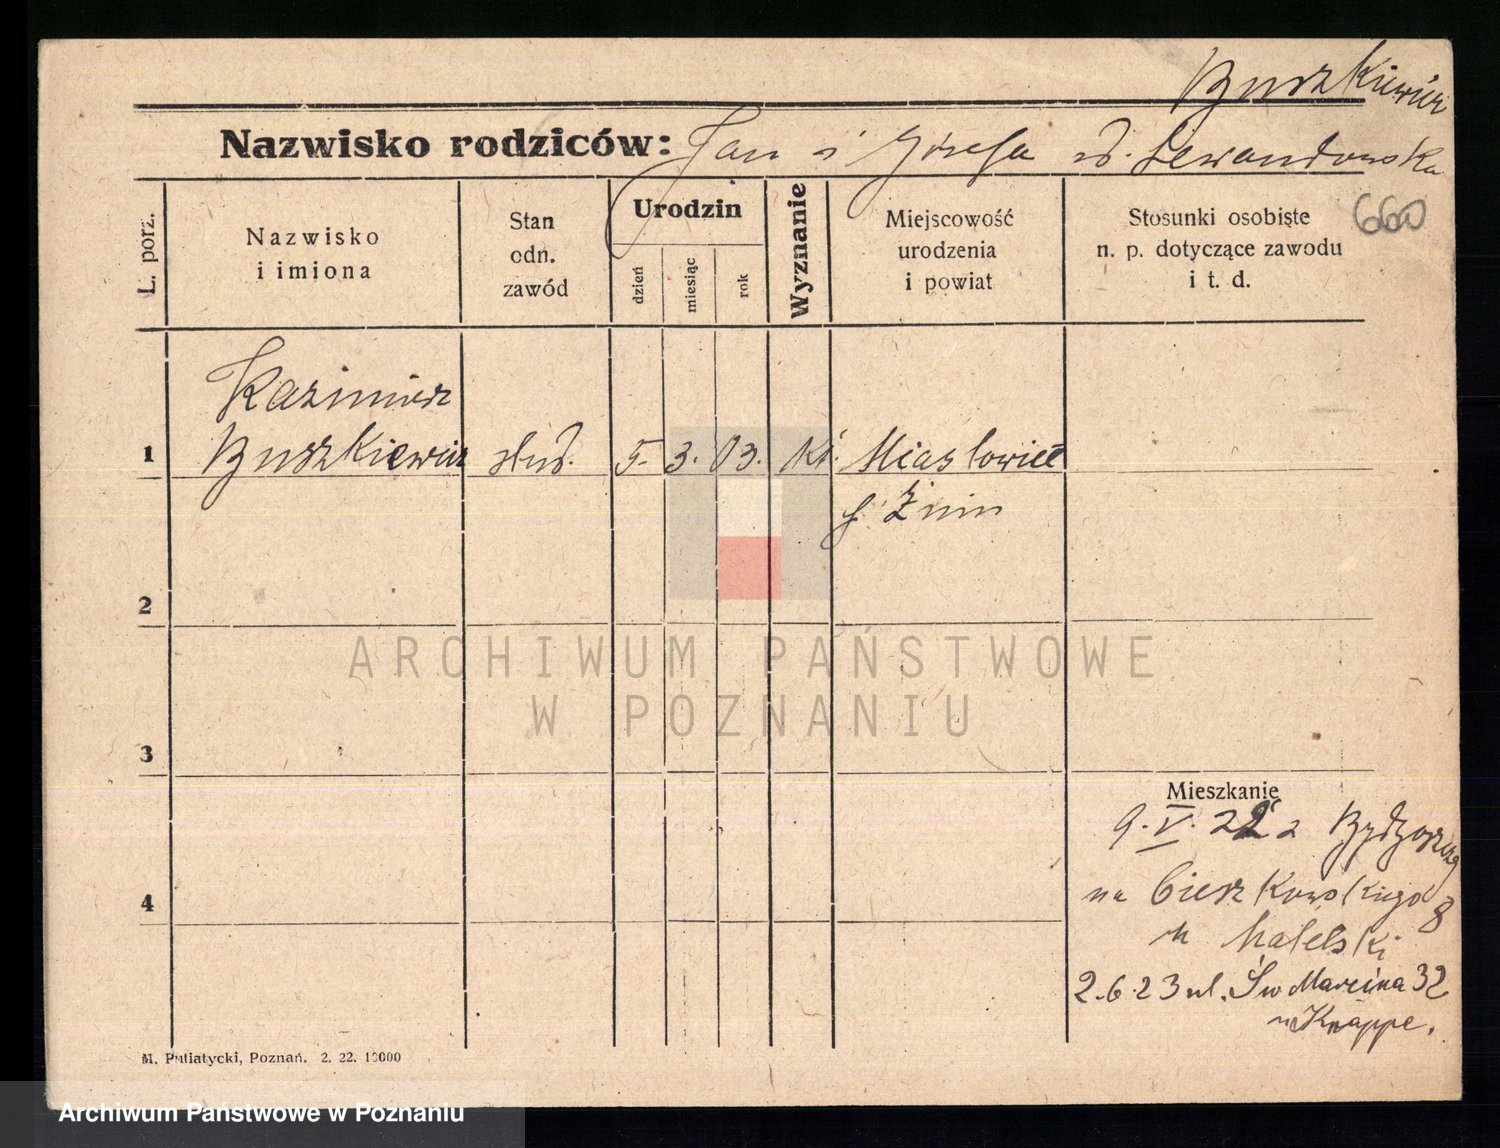 Buszkiewicz
Nazwisko rodziców: Jan i Józefa z d. Lewandowska
660
L. porz.
Nazwisko
i imiona
Stan
odn.
zawód
Urodzin
dzień
miesiąc
rok
Wyznanie
Miejscowość
urodzenia
i powiat
Stosunki osobiste
n. p. dotyczące zawodu
i t. d.
Kazimierz
1 Buszkiewicz stud. 5. 3. 03. kt.
Żnin
2
ARCHIWUM PAŃSTWOWE
W POZNANIU
3
Mieszkanie
9. V. 22 z Bydgoszczy
4
na Cieszkowskiego 8
2.6.23 ul. Św Marcina 32
Knappe.
M. Putiatycki, Poznań. 2. 22. 10000
Archiwum Państwowe w Poznaniu